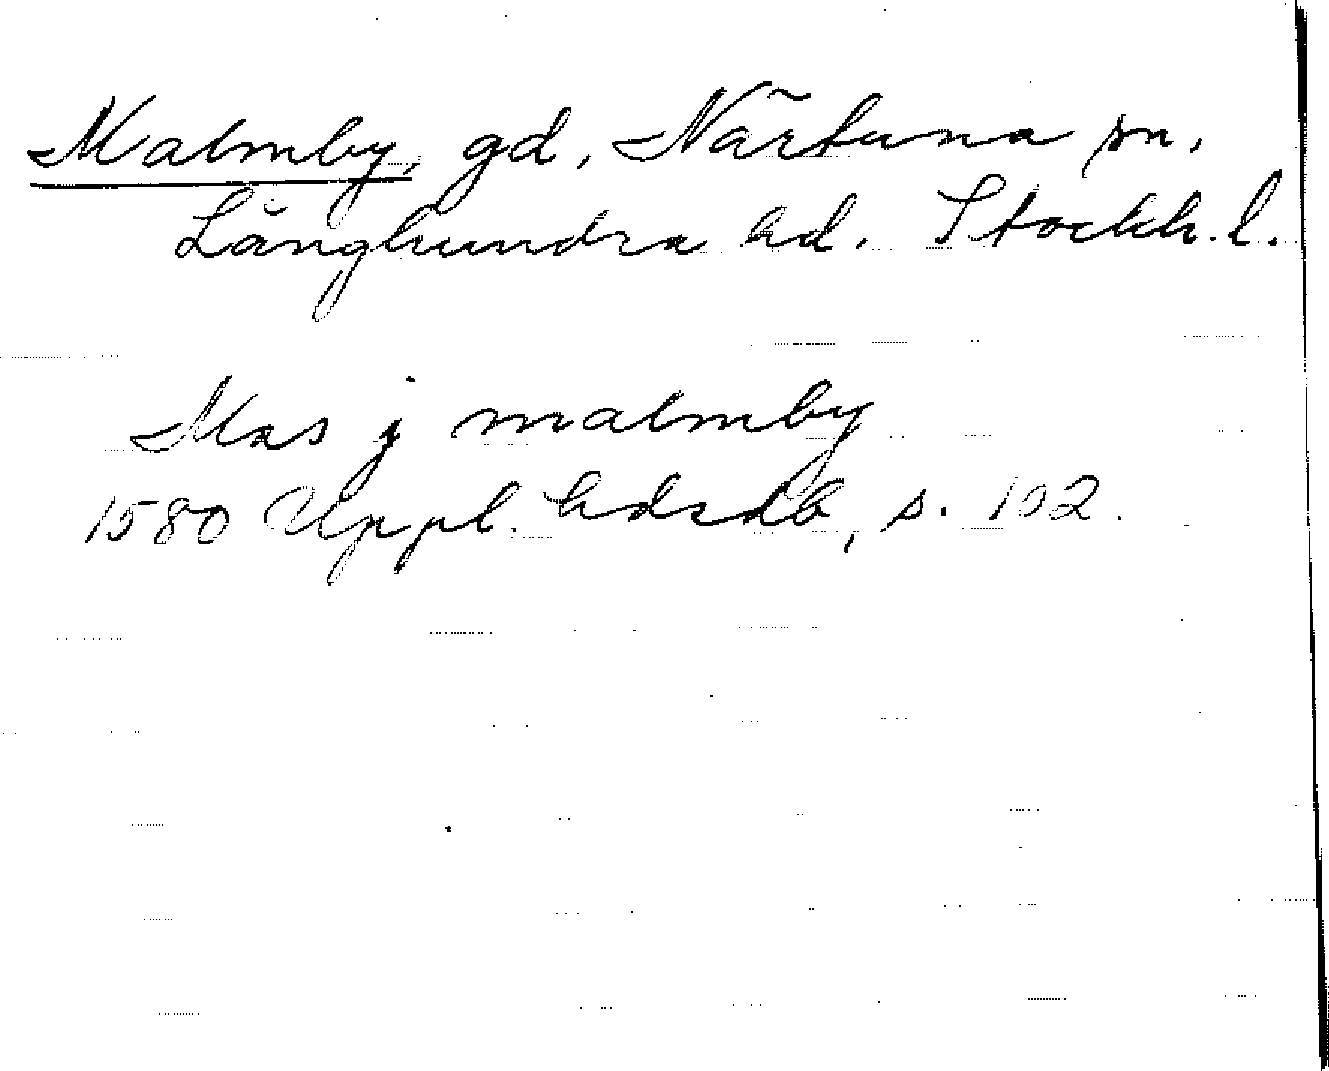 Malmby, gd, Närtuna sn,
Långhundra hd. Stockh. l.
Mas j malmby
1580 Uppl. hdsdb, s. 102.